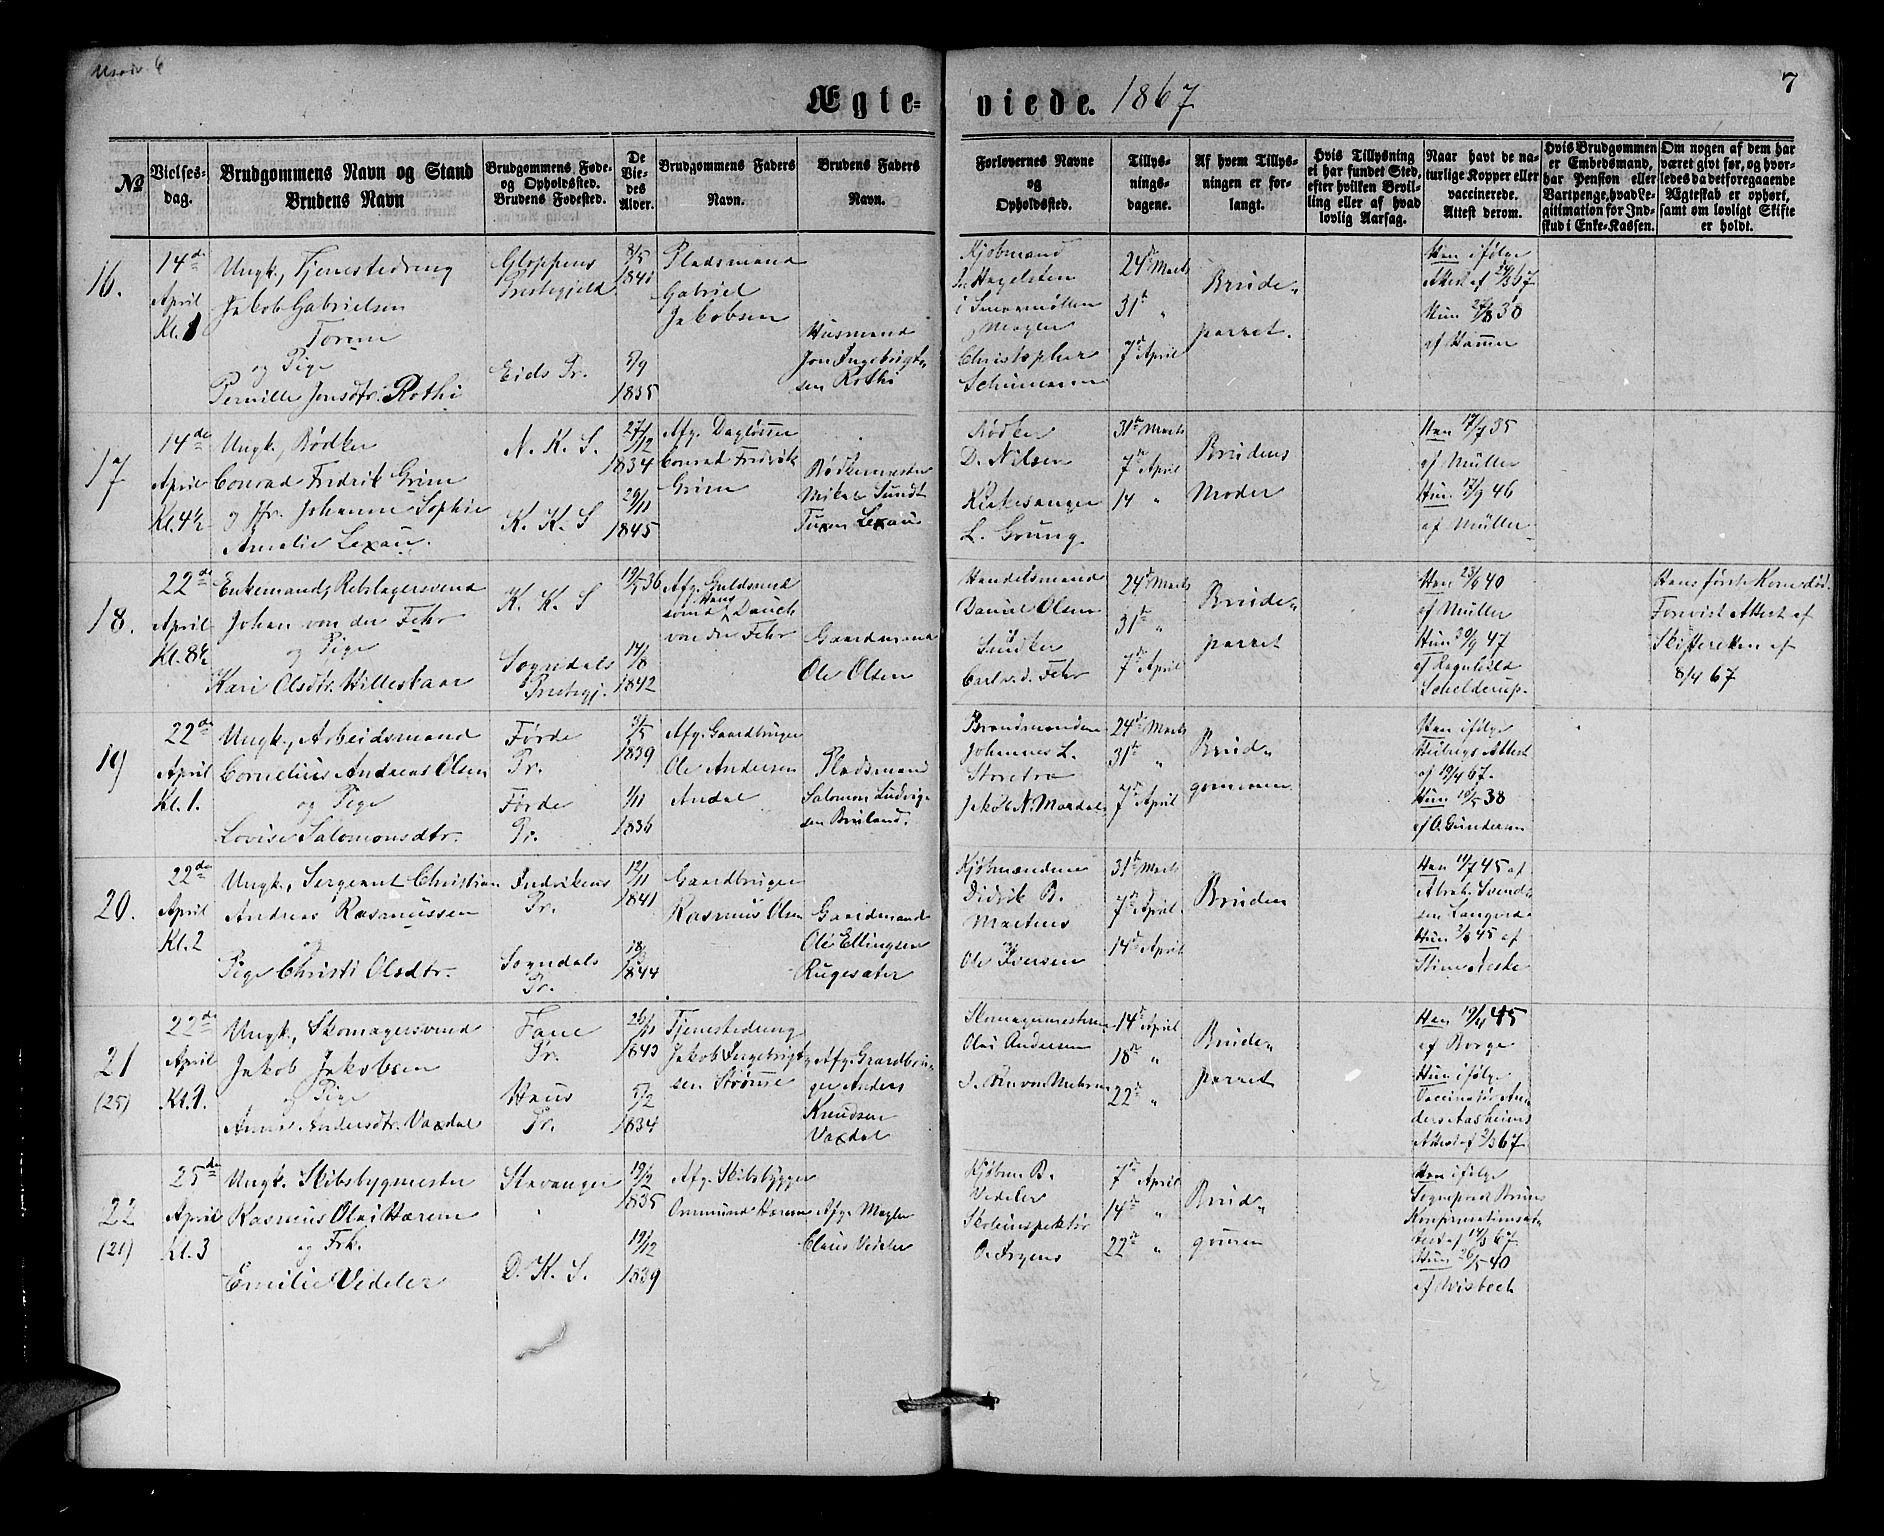 7
Ægteviede. 1867
No
Vielsesdag.
Brudgommens Navn og Stand
Brudens Navn
Brudgommens Føde- og Opholdssted.
Brudens Fødested.
De Viedes Alder.
Brudgommens Faders Navn.
Brudens Faders Navn.
Forlovernes Navne og Opholdssted.
Tillysningsdagene.
Af hvem Tillysningen er forlangt.
Hvis Tillysning ei har fundet Sted, efter hvilken Bevilling eller af hvad lovlig Aarsag.
Naar havt de naturlige Kopper eller vaccinerede. Attest derom.
Hvis Brudgommen er Embedsmand, har Pension eller Vartpenge, hvad Legitimation for Indskud i Enke-Kassen.
Om nogen af dem har været givt før, og hvorledes da det foregaaende Ægteskab er ophørt, samt om lovligt Skifte er holdt.
16.
14de April Kl. 1
Ungk., Tjenestedreng
Jakob Gabrielsen
og Pige
Pernille Jonsdtr. Rothi
Gloppens Prestegjeld
Eids Pr.
8/5 1841
5/9 1835
Pladsmand
Gabriel
Jakobsen
Husmand
Jon Ingebrigtsen Rothi
Kjøbmand
Hagelsten
Christopher
Schumann
24de Marts
31te "
7de April
Brudeparret.
Han ifølge
Attest af 24/3 67
Hun 27/8 38
af Hamre
17
14de April Kl. 4½
Ungk., Bødker
Conrad Fredrik Grim
og Jfr. Johanne Sophie
Amalie Lexau.
N. K. S.
K. K. S
27/12 1834
29/11 1845
Afg. Dagløsser
Conrad Fredrik
Grim
Bødkermester
Mikal Sundt
Tuxen Lexau
Bødker
D. Nilsen
Kirkesanger
L. Grung
31te Marts
7de April
14 "
Brudens Moder
Han 17/7 35
af Müller
Hun 17/9 46
af Müller
18.
22de April Kl. 8½
Enkemand, Rebslagersvend
Johan von der Fehr
og Pige
Kari Olsdtr. Hillestaar
K. K. S
Sogndals Prestegj.
19/5 36
14/8 1842
Afg. Guldsmed
svend Hans Dauch
von der Fehr
Gaardmand
Ole Olsen
Handelsmand
Daniel Olsen
Snedker
Carl v. d. Fehr
24de Marts
31te "
7de April
Brudeparret
Han 23/9 40
af Müller
Hun 30/9 47
af Ragnhild
Schelderup.
Hans første Kone død.
Forevist Attest af
Skifteretten af
8/4 67
19
22de April Kl. 1.
Ungk., Arbeidsmand
Cornelius Andreas Olsen
og Pige
Lovise Salomonsdtr.
Førde Pr.
Førde Pr.
31/5 1839
1/11 1836
Afg. Gaardbruger
Ole Andersen
Andal
Pladsmand
Salomon Ludvigsen Bruland.
Brandmændene
Johannes L.
Storetra
Jakob A. Mardal
24de Marts
31te "
7de April
Brudgommen
Han ifølge
Attest
af 19/4 67.
Hun 10/5 38
af O. Gundersen
20.
22de April Kl. 2
Ungk., Sergeant Christian
Andreas Rasmussen
og
Pige Christi Olsdtr.
Indvikens Pr.
Sogndals Pr.
12/11 1841
1844
Gaardbruger
Rasmus Olsen
Gaardmand
Ole Ellingsen
Rugesæter
Kjøbmændene
Didrik B.
Martens
Ole Iversen
31te Marts
7de April.
14de April
Bruden
Han 11/7 45 af
Abrah. Svendsen
Hun 45 af
Stine Aaske
21
(25)
22de April Kl. 9.
Ungk., Skomagersvend
Jakob Jakobsen
og Pige
Anna Andersdtr. Vaxdal
Fane Pr.
Haus Pr.
26/11 1843
5/2 1834
Tjenestedreng
Jakob Ingebrigtsen Strømse
Afg. Gaardbruger Anders
Knudsen
Vaxdal
Skomagermestrene
Olai Andersen
14de April
18de "
22de "
Brudeparret
Han 19/4 45
af Borge
Hun ifølge
Vaccinatør Anders Aasheims
Attest af 3/3 67
22
(21)
25de April Kl. 3
Ungk. Skibsbygmester
Rasmus Olai Hærem
og Frk.
Emilie Vedeler
Stavanger
D. K. S.
19/2 1835
19/12 1839
Afg. Skibsbygger
Ommund Hærem
Afg. Mægler
Claus Vedeler
Kjøbm. B.
Vedeler
Skoleinspektør
O. Irgens
7de April
14de "
22de "
Brudgommen
Han ifølge
Sogneprest Bruns
Konfirmationsattest af 14/3 67.
Hun 26/5 40
af Wisbech